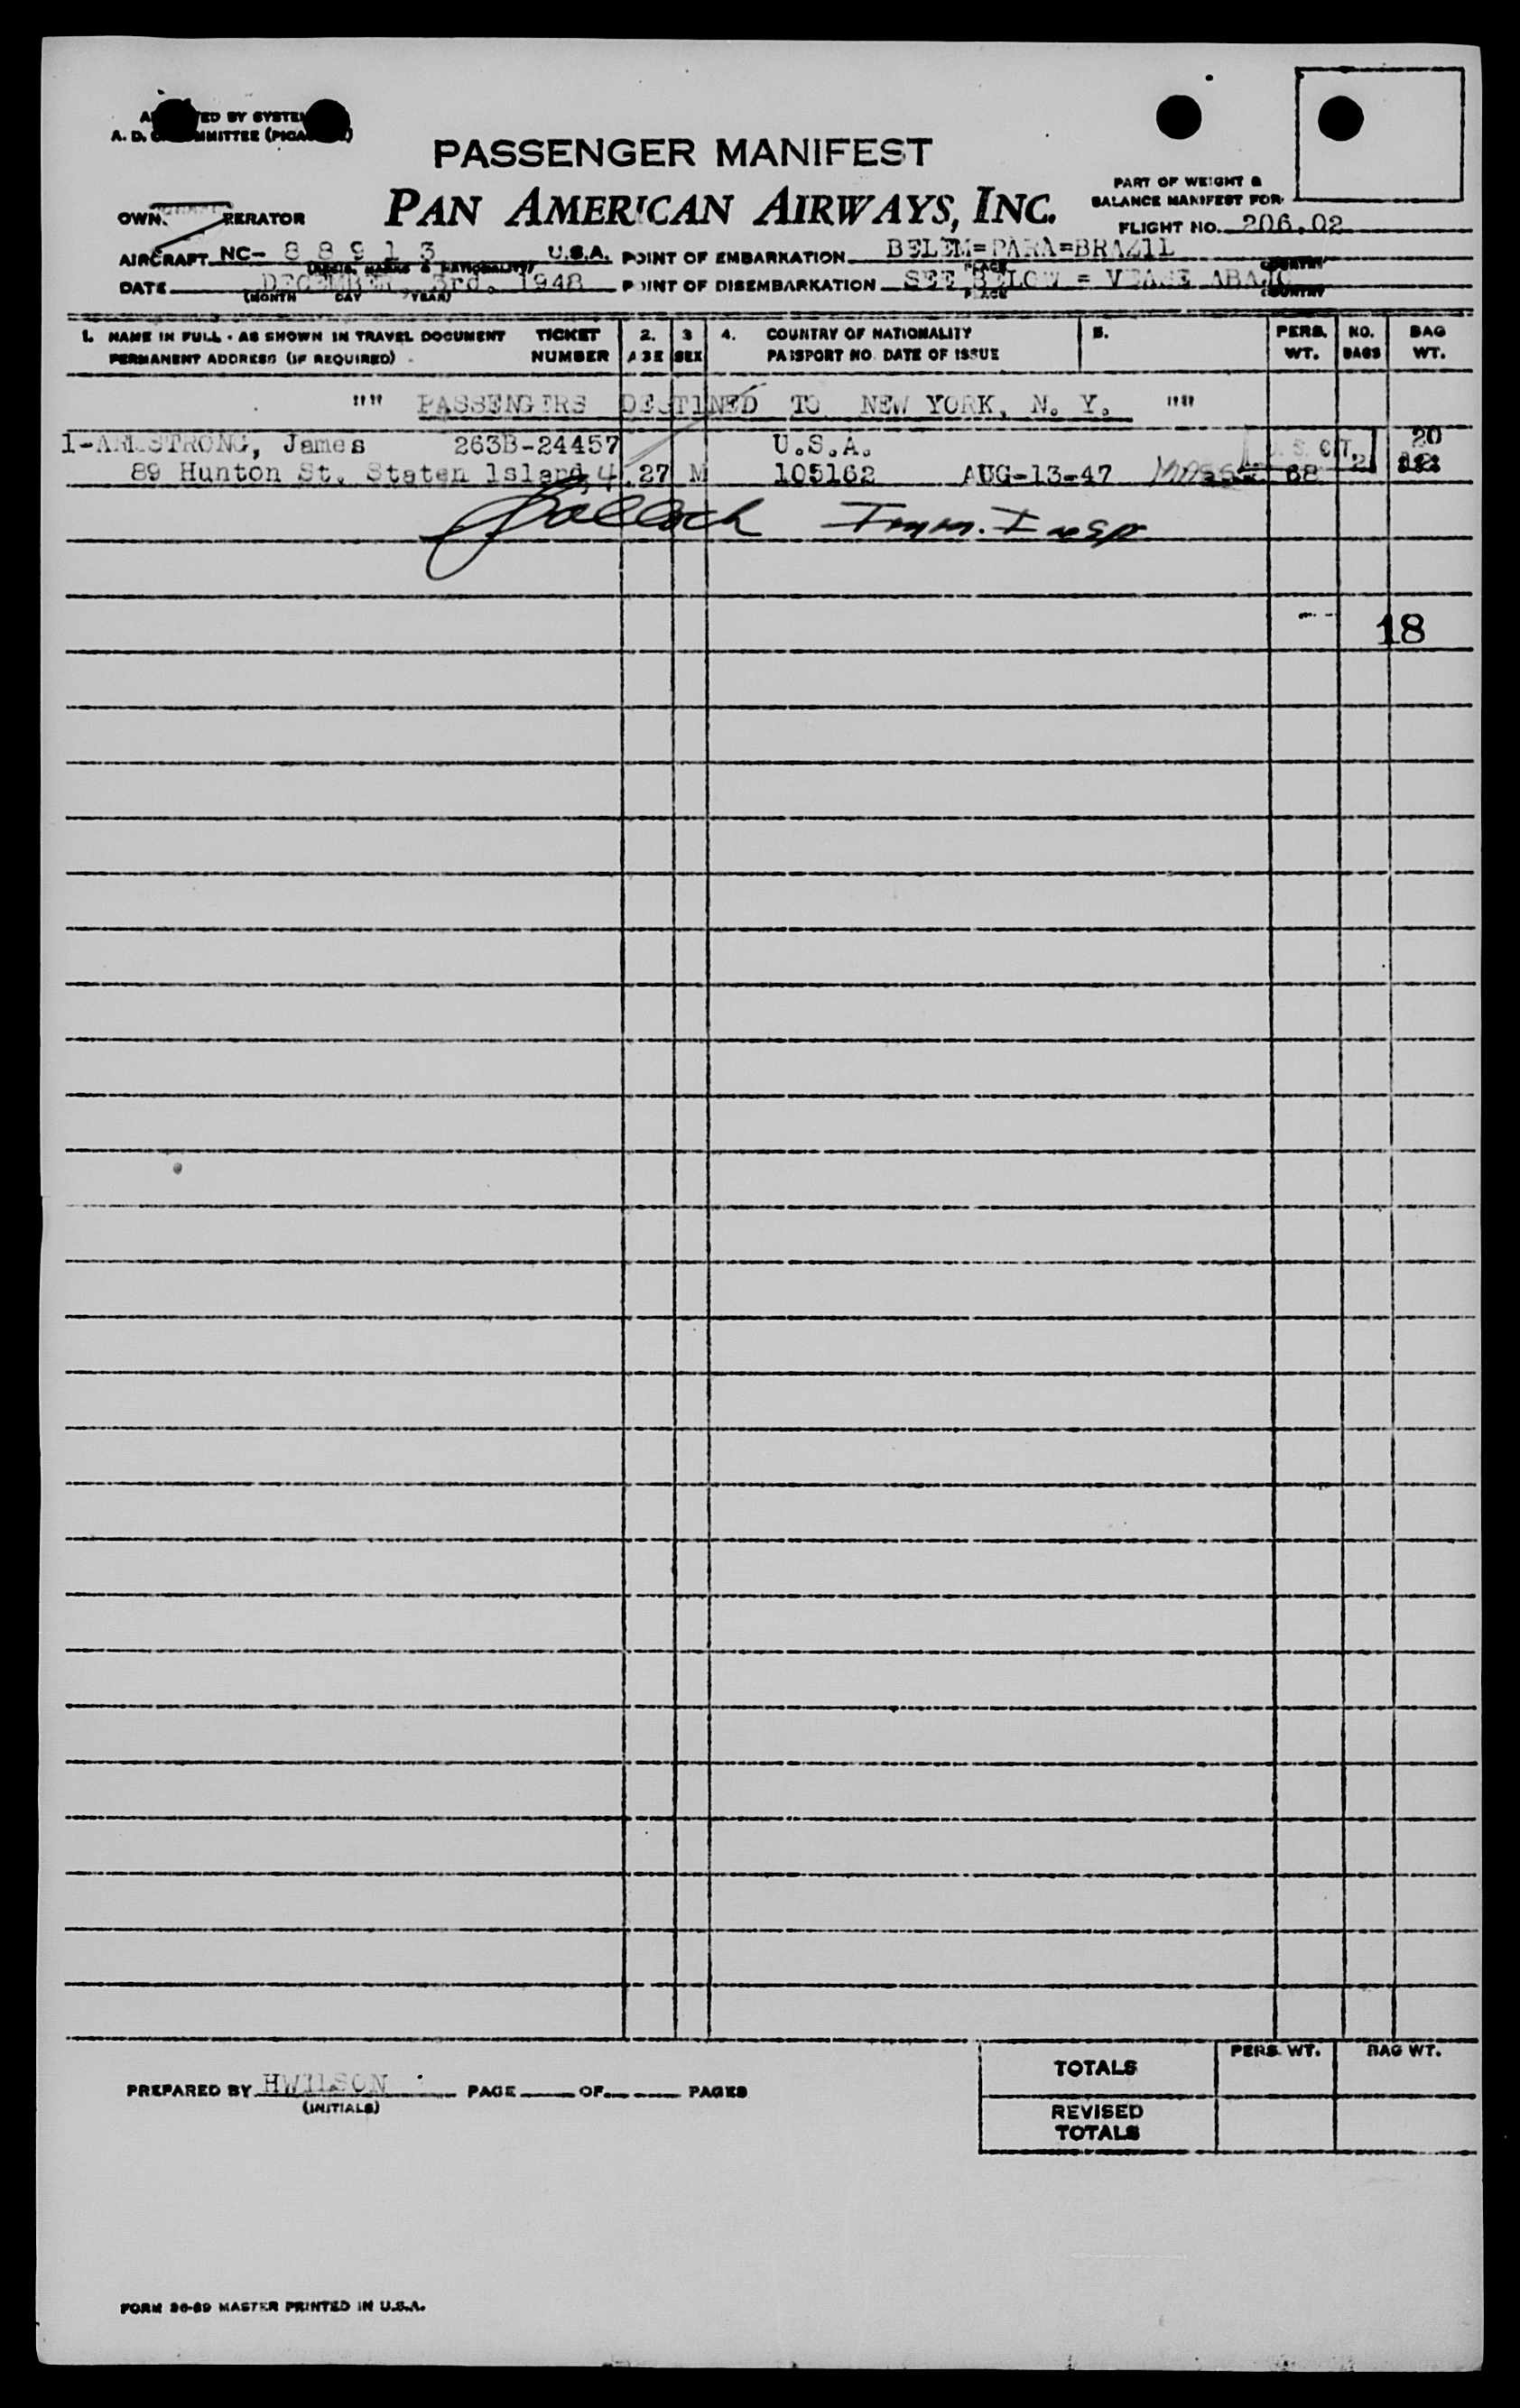 PASSENGER MANIFEST
PAN AMERICAN AIRWAYS, INC.
PART OF WEIGHT &
BALANCE MANIFEST FOR
FLIGHT NO. 206.02
AIRCRAFT NC- 8 8 9 1 3 U.S.A. POINT OF EMBARKATION BELEM=PARA=BRAZ1L
(REGIS. MARKS & NATIONALITY) PLACE COUNTRY
DATE DECEMBER 3rd. 1948 POINT OF DISEMBARKATION SEE BELOW = VEASE ABAJO
(MONTH DAY YEAR) PLACE COUNTRY
1. NAME IN FULL - AS SHOWN IN TRAVEL DOCUMENT TICKET 2. 3 4. COUNTRY OF NATIONALITY 5. PERS. NO. BAG
PERMANENT ADDRESS (IF REQUIRED) NUMBER AGE SEX PASSPORT NO. DATE OF ISSUE WT. BAGS WT.
"" PASSENGERS DEST1NED TO NEW YORK, N. Y. ""
1-ARMSTRONG, James 263B-24457 U.S.A. U. S. CIT. 20
89 Hunton St. Staten 1sland, 4 27 M 105162 AUG-13-47 68 2
Imm. Insp
18
PREPARED BY HW1LSON PAGE OF PAGES
(INITIALS)
PERS. WT. BAG WT.
TOTALS
REVISED
TOTALS
FORM 26-89 MASTER PRINTED IN U.S.A.